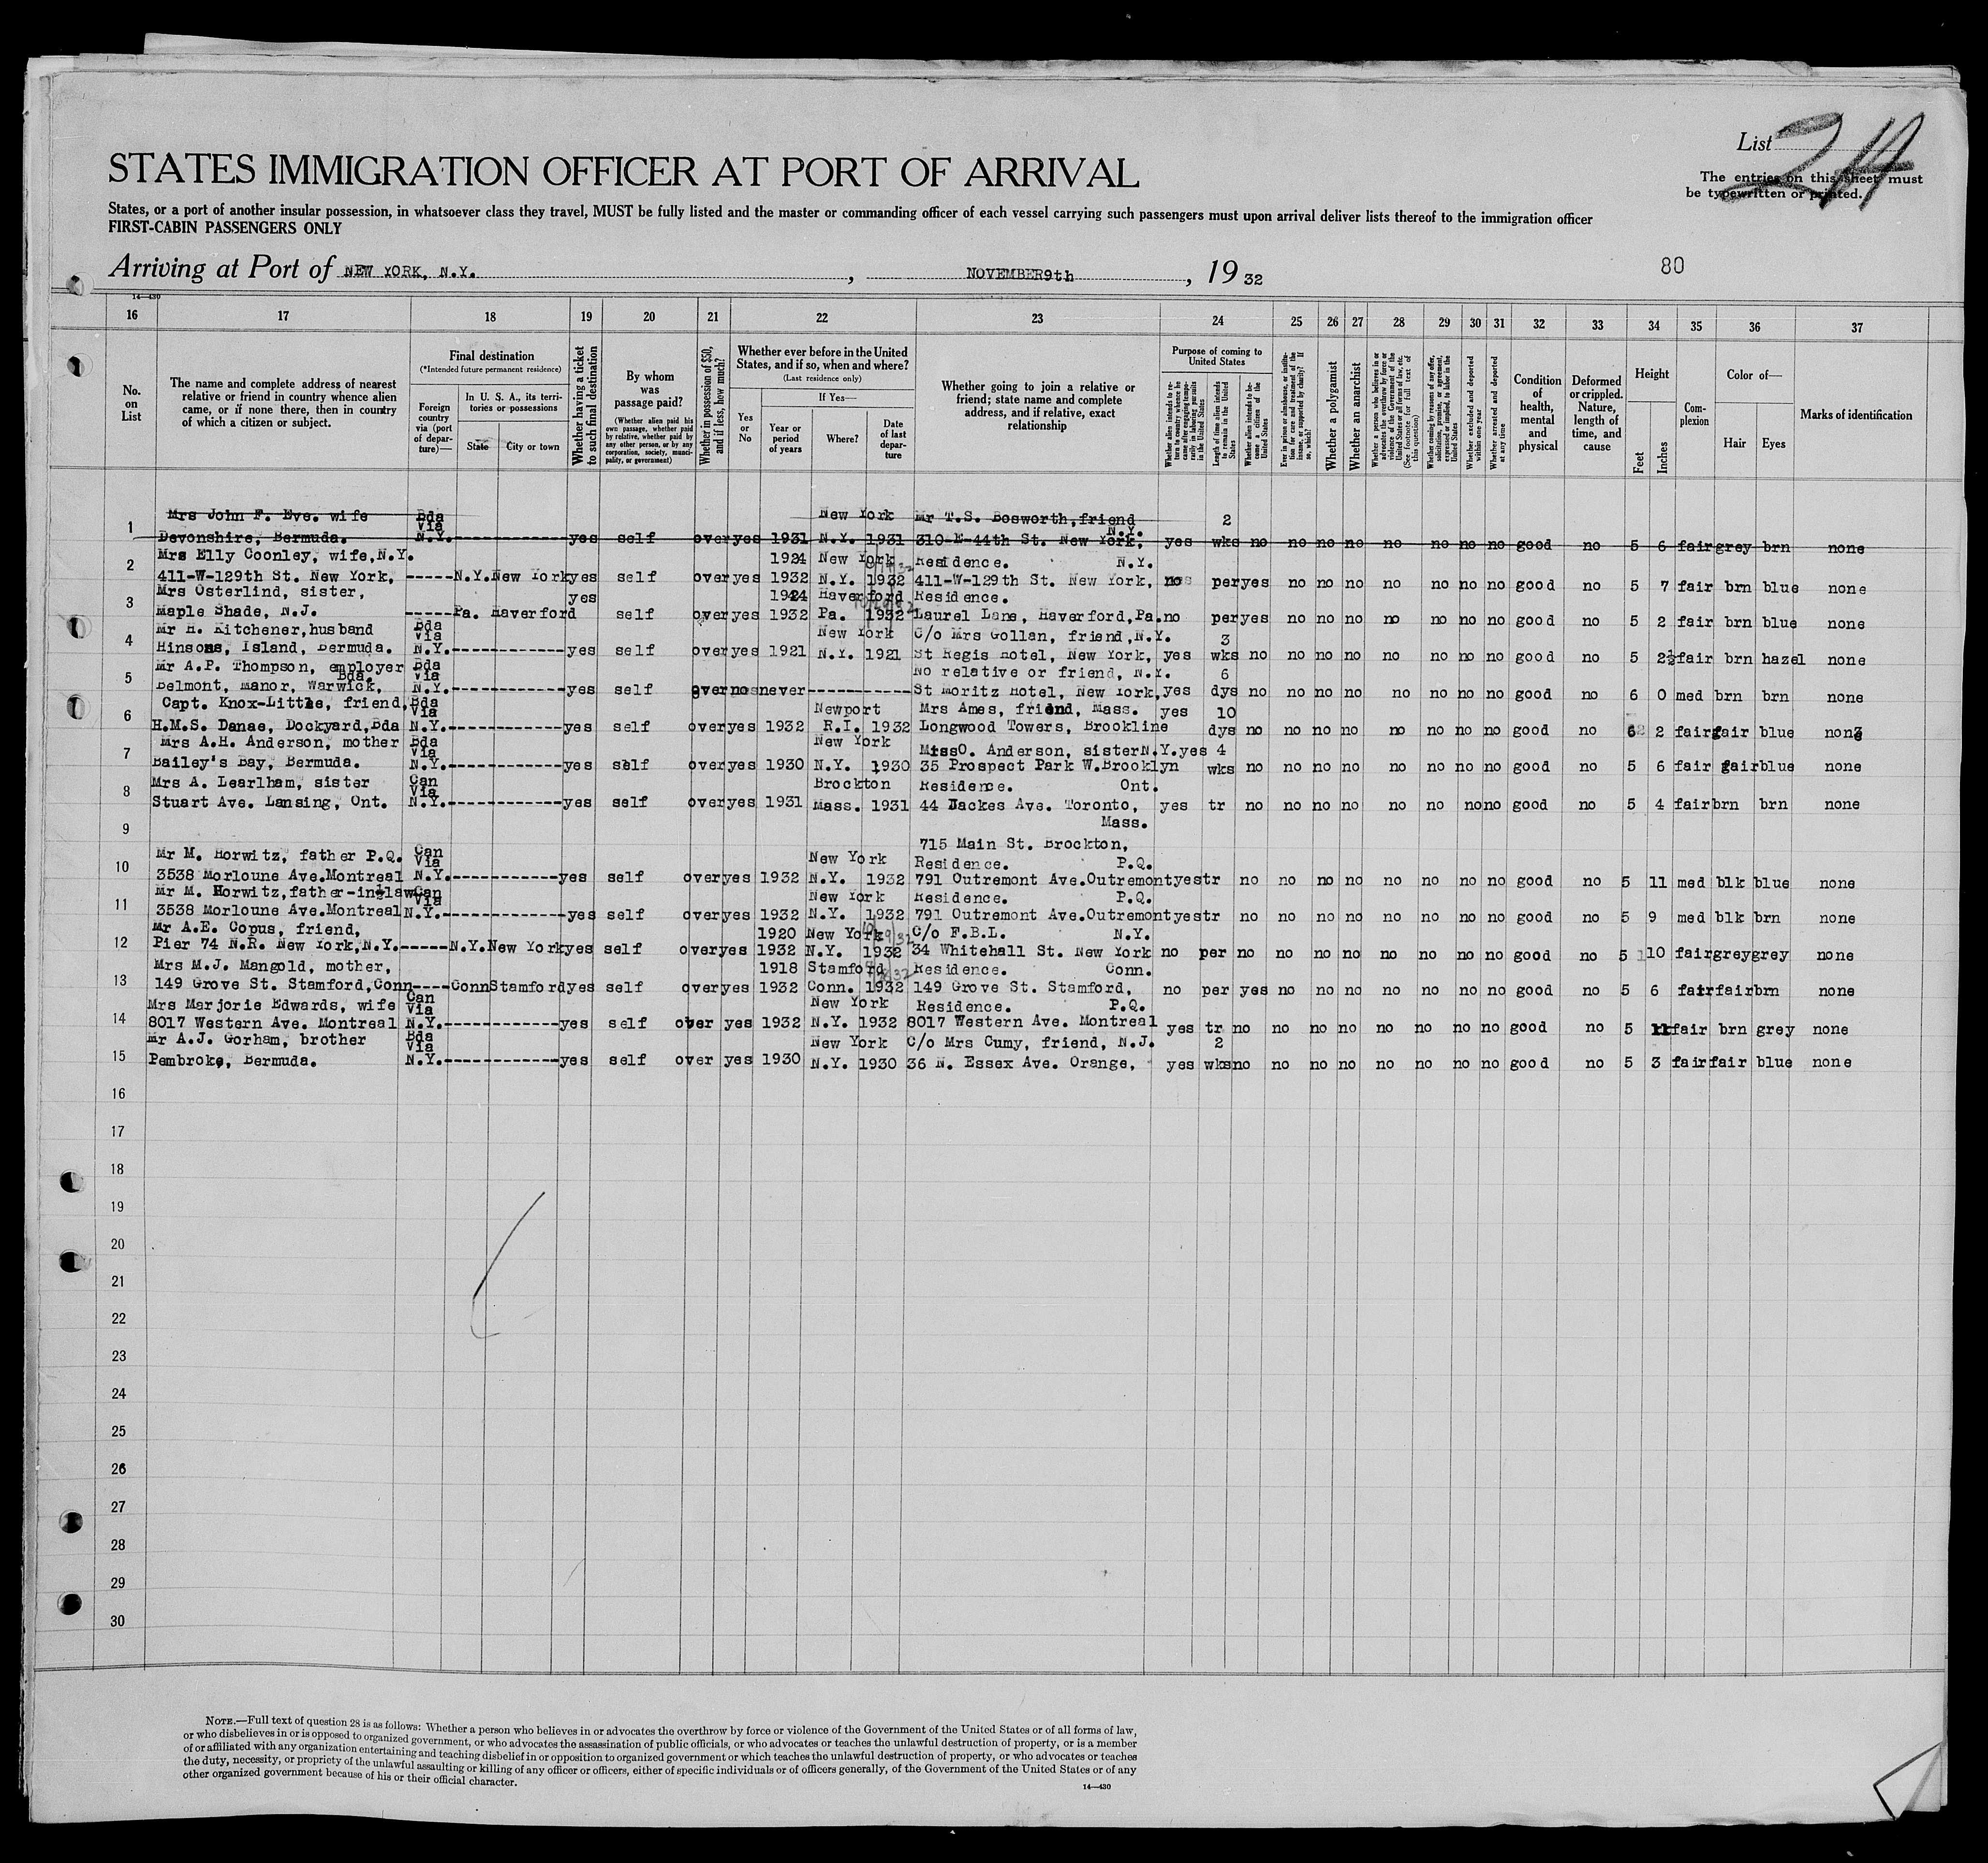 List 
The entries on this sheet must
be typewritten or printed.
STATES IMMIGRATION OFFICER AT PORT OF ARRIVAL
States, or a port of another insular possession, in whatsoever class they travel, MUST be fully listed and the master or commanding officer of each vessel carrying such passengers must upon arrival deliver lists thereof to the immigration officer
FIRST-CABIN PASSENGERS ONLY
Arriving at Port of NEW YORK, N.Y. , NOVEMBER9th , 19 32
80
14—430
16 17 18 19 20 21 22 23 24 25 26 27 28 29 30 31 32 33 34 35 36 37
No. on List
The name and complete address of nearest relative or friend in country whence alien came, or if none there, then in country of which a citizen or subject.
Final destination
(*Intended future permanent residence)
Foreign country via (port of departure)—
In U. S. A., its territories or possessions
State City or town
Whether having a ticket to such final destination
By whom was passage paid?
(Whether alien paid his own passage, whether paid by relative, whether paid by any other person, or by any corporation, society, municipality, or government)
Whether in possession of $50, and if less, how much?
Whether ever before in the United States, and if so, when and where?
(Last residence only)
Yes or No
If Yes—
Year or period of years
Where?
Date of last departure
Whether going to join a relative or friend; state name and complete address, and if relative, exact relationship
Purpose of coming to United States
Length of time alien intends to remain in the United States
Whether alien intends to become a citizen of the United States
Whether a polygamist
Whether an anarchist
Whether excluded and deported within one year
Whether arrested and deported at any time
Condition of health, mental and physical
Deformed or crippled. Nature, length of time, and cause
Height
Feet Inches
Complexion
Color of—
Hair Eyes
Marks of identification
Mrs John F. Eve. wife Bda Via New York Mr T.S. Bosworth,friend 2
1 Devonshire, Bermuda. N.Y.------------yes self over yes 1931 N.Y. 1931 310-E-44th St. New York, N.Y. yes wks no no no no no no no no good no 5 6 fair grey brn none
Mrs Elly Coonley, wife,N.Y. 1924 New York Residence. N.Y.
2 411-W-129th St. New York, -----N.Y.New York yes self over yes 1932 N.Y. 1932 411-W-129th St. New York, no per yes no no no no no no no good no 5 7 fair brn blue none
Mrs Osterlind, sister, yes 1924 Haverford Residence.
3 Maple Shade, N.J. -----Pa. Haverford self over yes 1932 Pa. 1932 Laurel Lane, Haverford,Pa. no per yes no no no no no no no good no 5 2 fair brn blue none
Mr H. Kitchener,husband Bda Via New York C/o Mrs Gollan, friend,N.Y. 3
4 Hinsons, Island, Bermuda. N.Y.------------yes self over yes 1921 N.Y. 1921 St Regis Hotel, New York, yes wks no no no no no no no no good no 5 2½ fair brn hazel none
Mr A.P. Thompson, employer Bda Via No relative or friend, N.Y. 6
5 Belmont, Manor, Warwick, Bda. N.Y.------------yes self over no never---------- St Moritz Hotel, New York, yes dys no no no no no no no no good no 6 0 med brn brn none
Capt. Knox-Little, friend, Bda Via Newport Mrs Ames, friend, Mass. yes 10
6 H.M.S. Danae, Dockyard,Bda N.Y.------------yes self over yes 1932 R.I. 1932 Longwood Towers, Brookline dys no no no no no no no no good no 6 2 fair fair blue none
Mrs A.H. Anderson, mother Bda Via New York MissO. Anderson, sister N.Y. yes 4
7 Bailey's Bay, Bermuda. N.Y.------------yes self over yes 1930 N.Y. 1930 35 Prospect Park W.Brooklyn wks no no no no no no no no good no 5 6 fair fair blue none
Mrs A. Learlham, sister Can Via Brockton Residence. Ont.
8 Stuart Ave. Lansing, Ont. N.Y.------------yes self over yes 1931 Mass. 1931 44 Jackes Ave. Toronto, yes tr no no no no no no no no good no 5 4 fair brn brn none
Mass.
9 715 Main St. Brockton,
Mr M. Horwitz, father P.Q. Can Via New York Residence. P.Q.
10 3538 Morloune Ave.Montreal N.Y.------------yes self over yes 1932 N.Y. 1932 791 Outremont Ave.Outremont yes tr no no no no no no no no good no 5 11 med blk blue none
Mr M. Horwitz,father-in-law Can Via New York Residence. P.Q.
11 3538 Morloune Ave.Montreal N.Y.------------yes self over yes 1932 N.Y. 1932 791 Outremont Ave.Outremont yes tr no no no no no no no no good no 5 9 med blk brn none
Mr A.E. Copus, friend, 1920 New York C/o F.B.L. N.Y.
12 Pier 74 N.R. New York,N.Y.-----N.Y.New York yes self over yes 1932 N.Y. 1932 34 Whitehall St. New York no per no no no no no no no no good no 5 10 fair grey grey none
Mrs M.J. Mangold, mother, 1918 Stamford Residence. Conn.
13 149 Grove St. Stamford,Conn----Conn Stamford yes self over yes 1932 Conn. 1932 149 Grove St. Stamford, no per yes no no no no no no no good no 5 6 fair fair brn none
Mrs Marjorie Edwards, wife Can Via New York Residence. P.Q.
14 8017 Western Ave. Montreal N.Y.------------yes self over yes 1932 N.Y. 1932 8017 Western Ave. Montreal yes tr no no no no no no no no good no 5 11 fair brn grey none
Mr A.J. Gorham, brother Bda Via New York C/o Mrs Cumy, friend, N.J. 2
15 Pembroke, Bermuda. N.Y.------------yes self over yes 1930 N.Y. 1930 36 N. Essex Ave. Orange, yes wks no no no no no no no no good no 5 3 fair fair blue none
16
17
18
19
20
21
22
23
24
25
26
27
28
29
30
NOTE.—Full text of question 28 is as follows: Whether a person who believes in or advocates the overthrow by force or violence of the Government of the United States or of all forms of law,
or who disbelieves in or is opposed to organized government, or who advocates the assassination of public officials, or who advocates or teaches the unlawful destruction of property, or is a member
of or affiliated with any organization entertaining and teaching disbelief in or opposition to organized government or which teaches the unlawful destruction of property, or who advocates or teaches
the duty, necessity, or propriety of the unlawful assaulting or killing of any officer or officers, either of specific individuals or of officers generally, of the Government of the United States or of any
other organized government because of his or their official character.
14—430